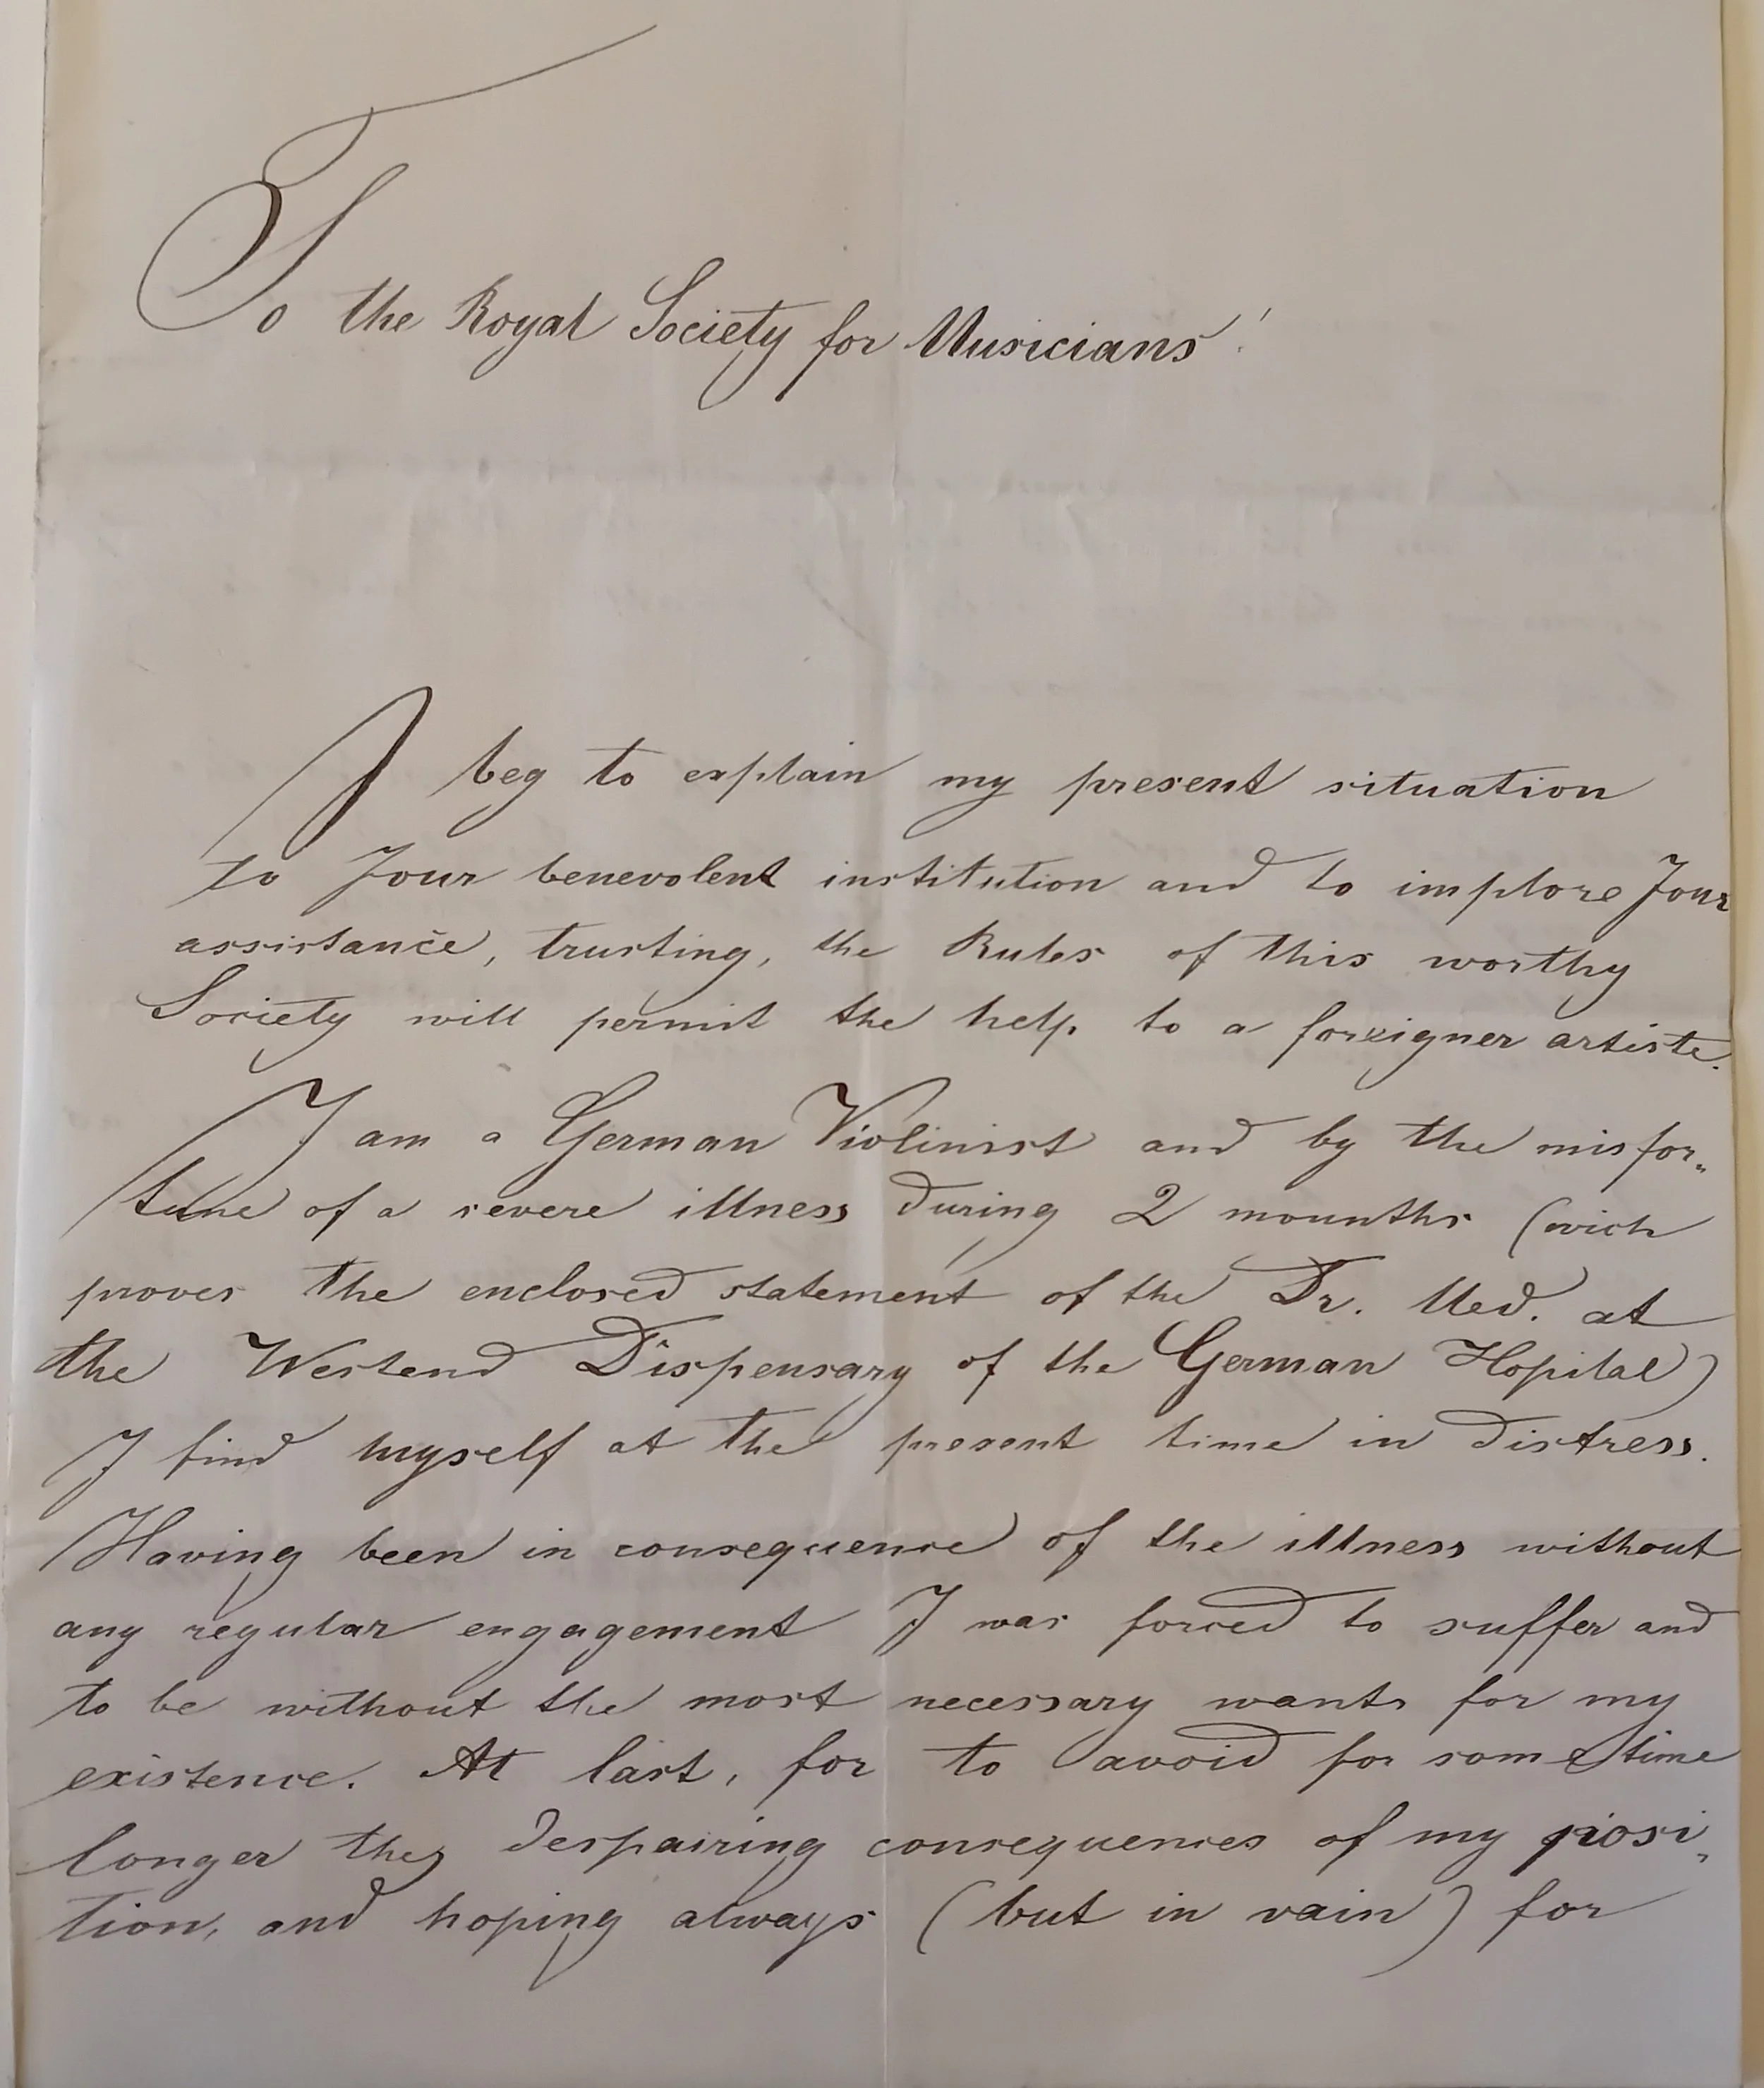 To the Royal Society for Musicians!
I beg to explain my present situation
to Your benevolent institution and to implore Your
assistance, trusting, the Rules of this worthy
Society will permit the help to a foreigner artiste.
I am a German Violinist and by the misfor„
tune of a severe illness during 2 mounths (wich
proves the enclosed statement of the Dr. Med. at
the Westend Dispensary of the German Hopital)
I find myself at the present time in distress.
Having been in consequence of the illness without
any regular engagement I was forced to suffer and
to be without the most necessary wants for my
existence. At last, for to avoid for some time
longer the despairing consequences of my posi„
tion, and hoping always (but in vain) for